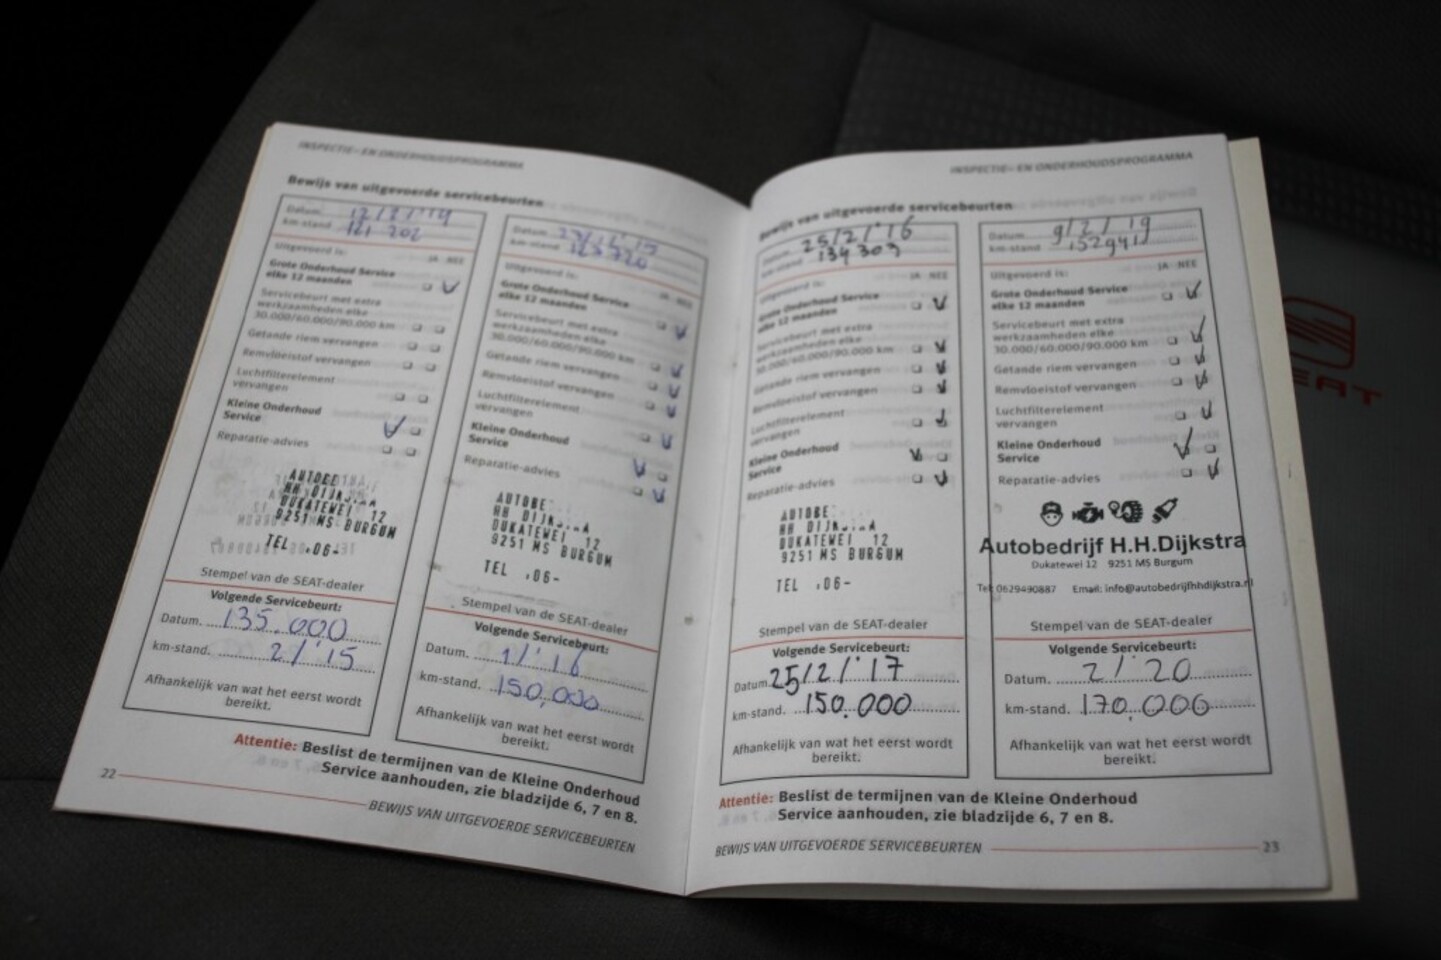 INSPECTIE- EN ONDERHOUDSPROGRAMMA
Bewijs van uitgevoerde servicebeurten
Datum. 12/2/'14
km-stand 121 202
Uitgevoerd is:
JA NEE
Grote Onderhoud Service
elke 12 maanden
Servicebeurt met extra
werkzaamheden elke
30.000/60.000/90.000 km
Getande riem vervangen
Remvloeistof vervangen
Luchtfilterelement
vervangen
Kleine Onderhoud
Service
Reparatie-advies
AUTOBE
HH DIJK
DUKATEWEI 12
9251 MS BURGUM
TEL .06-
Stempel van de SEAT-dealer
Volgende Servicebeurt:
Datum. 135.000
km-stand. 2/'15
Afhankelijk van wat het eerst wordt
bereikt.
Datum.
km-stand 123720
Uitgevoerd is:
JA NEE
Grote Onderhoud Service
elke 12 maanden
Servicebeurt met extra
werkzaamheden elke
30.000/60.000/90.000 km
Getande riem vervangen
Remvloeistof vervangen
Luchtfilterelement
vervangen
Kleine Onderhoud
Service
Reparatie-advies
AUTOBE
HH DIJK A
DUKATEWEI 12
9251 MS BURGUM
TEL .06-
Stempel van de SEAT-dealer
Volgende Servicebeurt:
Datum. 1/'16
km-stand. 150.000
Afhankelijk van wat het eerst wordt
bereikt.
Attentie: Beslist de termijnen van de Kleine Onderhoud
Service aanhouden, zie bladzijde 6, 7 en 8.
22
BEWIJS VAN UITGEVOERDE SERVICEBEURTEN
INSPECTIE- EN ONDERHOUDSPROGRAMMA
Bewijs van uitgevoerde servicebeurten
Datum. 25/2/'16
km-stand 134 303
Uitgevoerd is:
JA NEE
Grote Onderhoud Service
elke 12 maanden
Servicebeurt met extra
werkzaamheden elke
30.000/60.000/90.000 km
Getande riem vervangen
Remvloeistof vervangen
Luchtfilterelement
vervangen
Kleine Onderhoud
Service
Reparatie-advies
AUTOBE
HH DIJK A
DUKATEWEI 12
9251 MS BURGUM
TEL .06-
Stempel van de SEAT-dealer
Volgende Servicebeurt:
Datum. 25/2/'17
km-stand. 150.000
Afhankelijk van wat het eerst wordt
bereikt.
Datum. 9/2/'19
km-stand 152941
Uitgevoerd is:
JA NEE
Grote Onderhoud Service
elke 12 maanden
Servicebeurt met extra
werkzaamheden elke
30.000/60.000/90.000 km
Getande riem vervangen
Remvloeistof vervangen
Luchtfilterelement
vervangen
Kleine Onderhoud
Service
Reparatie-advies
Autobedrijf H.H.Dijkstra
Dukatewei 12 9251 MS Burgum
Tel: 0629490887 Email: info@autobedrijfhhdijkstra.nl
Stempel van de SEAT-dealer
Volgende Servicebeurt:
Datum. 2/'20
km-stand. 170.000
Afhankelijk van wat het eerst wordt
bereikt.
Attentie: Beslist de termijnen van de Kleine Onderhoud
Service aanhouden, zie bladzijde 6, 7 en 8.
BEWIJS VAN UITGEVOERDE SERVICEBEURTEN
23
SEAT